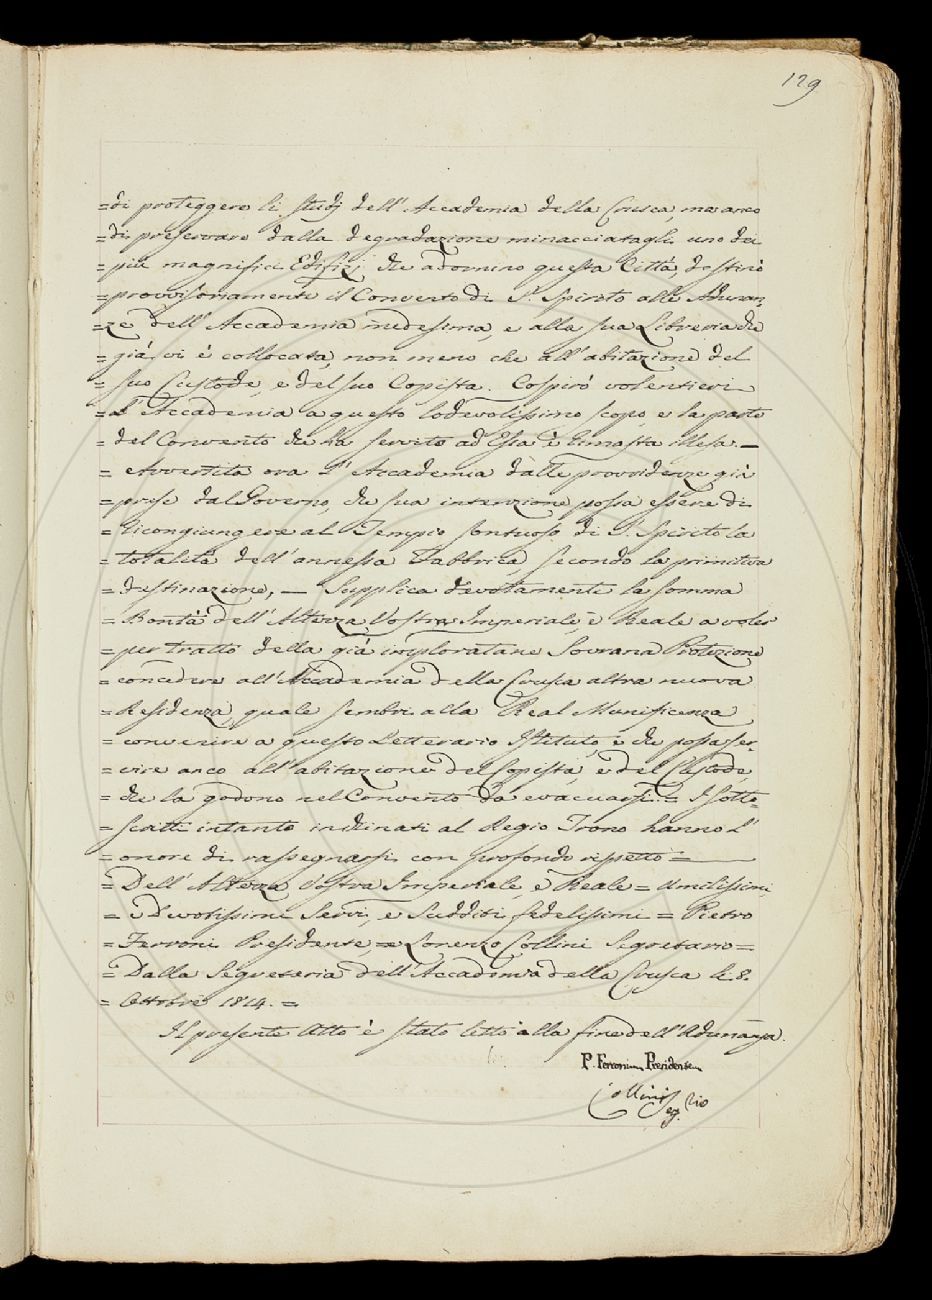 129
=di proteggere li Studj dell'Accademia della Crusca ma anco
=di preservare dalla degradazione minacciatagli uno dei
=più magnifici Edifizj che adornino questa Città, destinò
=provvisoriamente il Convento di S. Spirito alle Adunan-
=ze dell'Accademia medesima, e alla sua Libreria che
=già vi è collocata, non meno che all'abitazione del
=suo Custode, e del suo Copista. Cospirò volentieri
=L'Accademia a questo lodevolissimo scopo, e la parte
=del Convento che ha servito ad Essa è rimasta illesa. —
=Avvertita ora l'Accademia dalle provvidenze già
=prese dal Governo, che sua intenzione possa essere di
=ricongiungere al Tempio sontuoso di S. Spirito la
=totalità dell'annessa Fabbrica secondo la primitiva
=destinazione, — Supplica devotamente la somma
=Bontà dell'Altezza Vostra Imperiale, e Reale a voler
=per tratto della già imploratane Sovrana Protezione
=concedere all'Accademia della Crusca altra nuova
=Residenza, quale sembri alla Real Munificenza
=convenire a questo Letterario Istituto, e che possa ser-
=vire anco all'abitazione del Copista, e del Custode,
=che la godono nel Convento da evacuarsi. = I sotto-
=scritti intanto inchinati al Regio Trono hanno l'
=onore di rassegnarsi con profondo rispetto =
=Dell'Altezza Vostra Imperiale, e Reale = Umilissimi,
=Devotissimi Servi, e Sudditi fedelissimi = Pietro
=Ferroni Presidente, = Lorenzo Collini Segretario =
=Dalla Segreteria dell'Accademia della Crusca li 8.
=Ottobre 1814. =
Il presente Atto è stato letto alla fine dell'Adunanza.
P. Ferronius Presidente
Collini Seg.rio